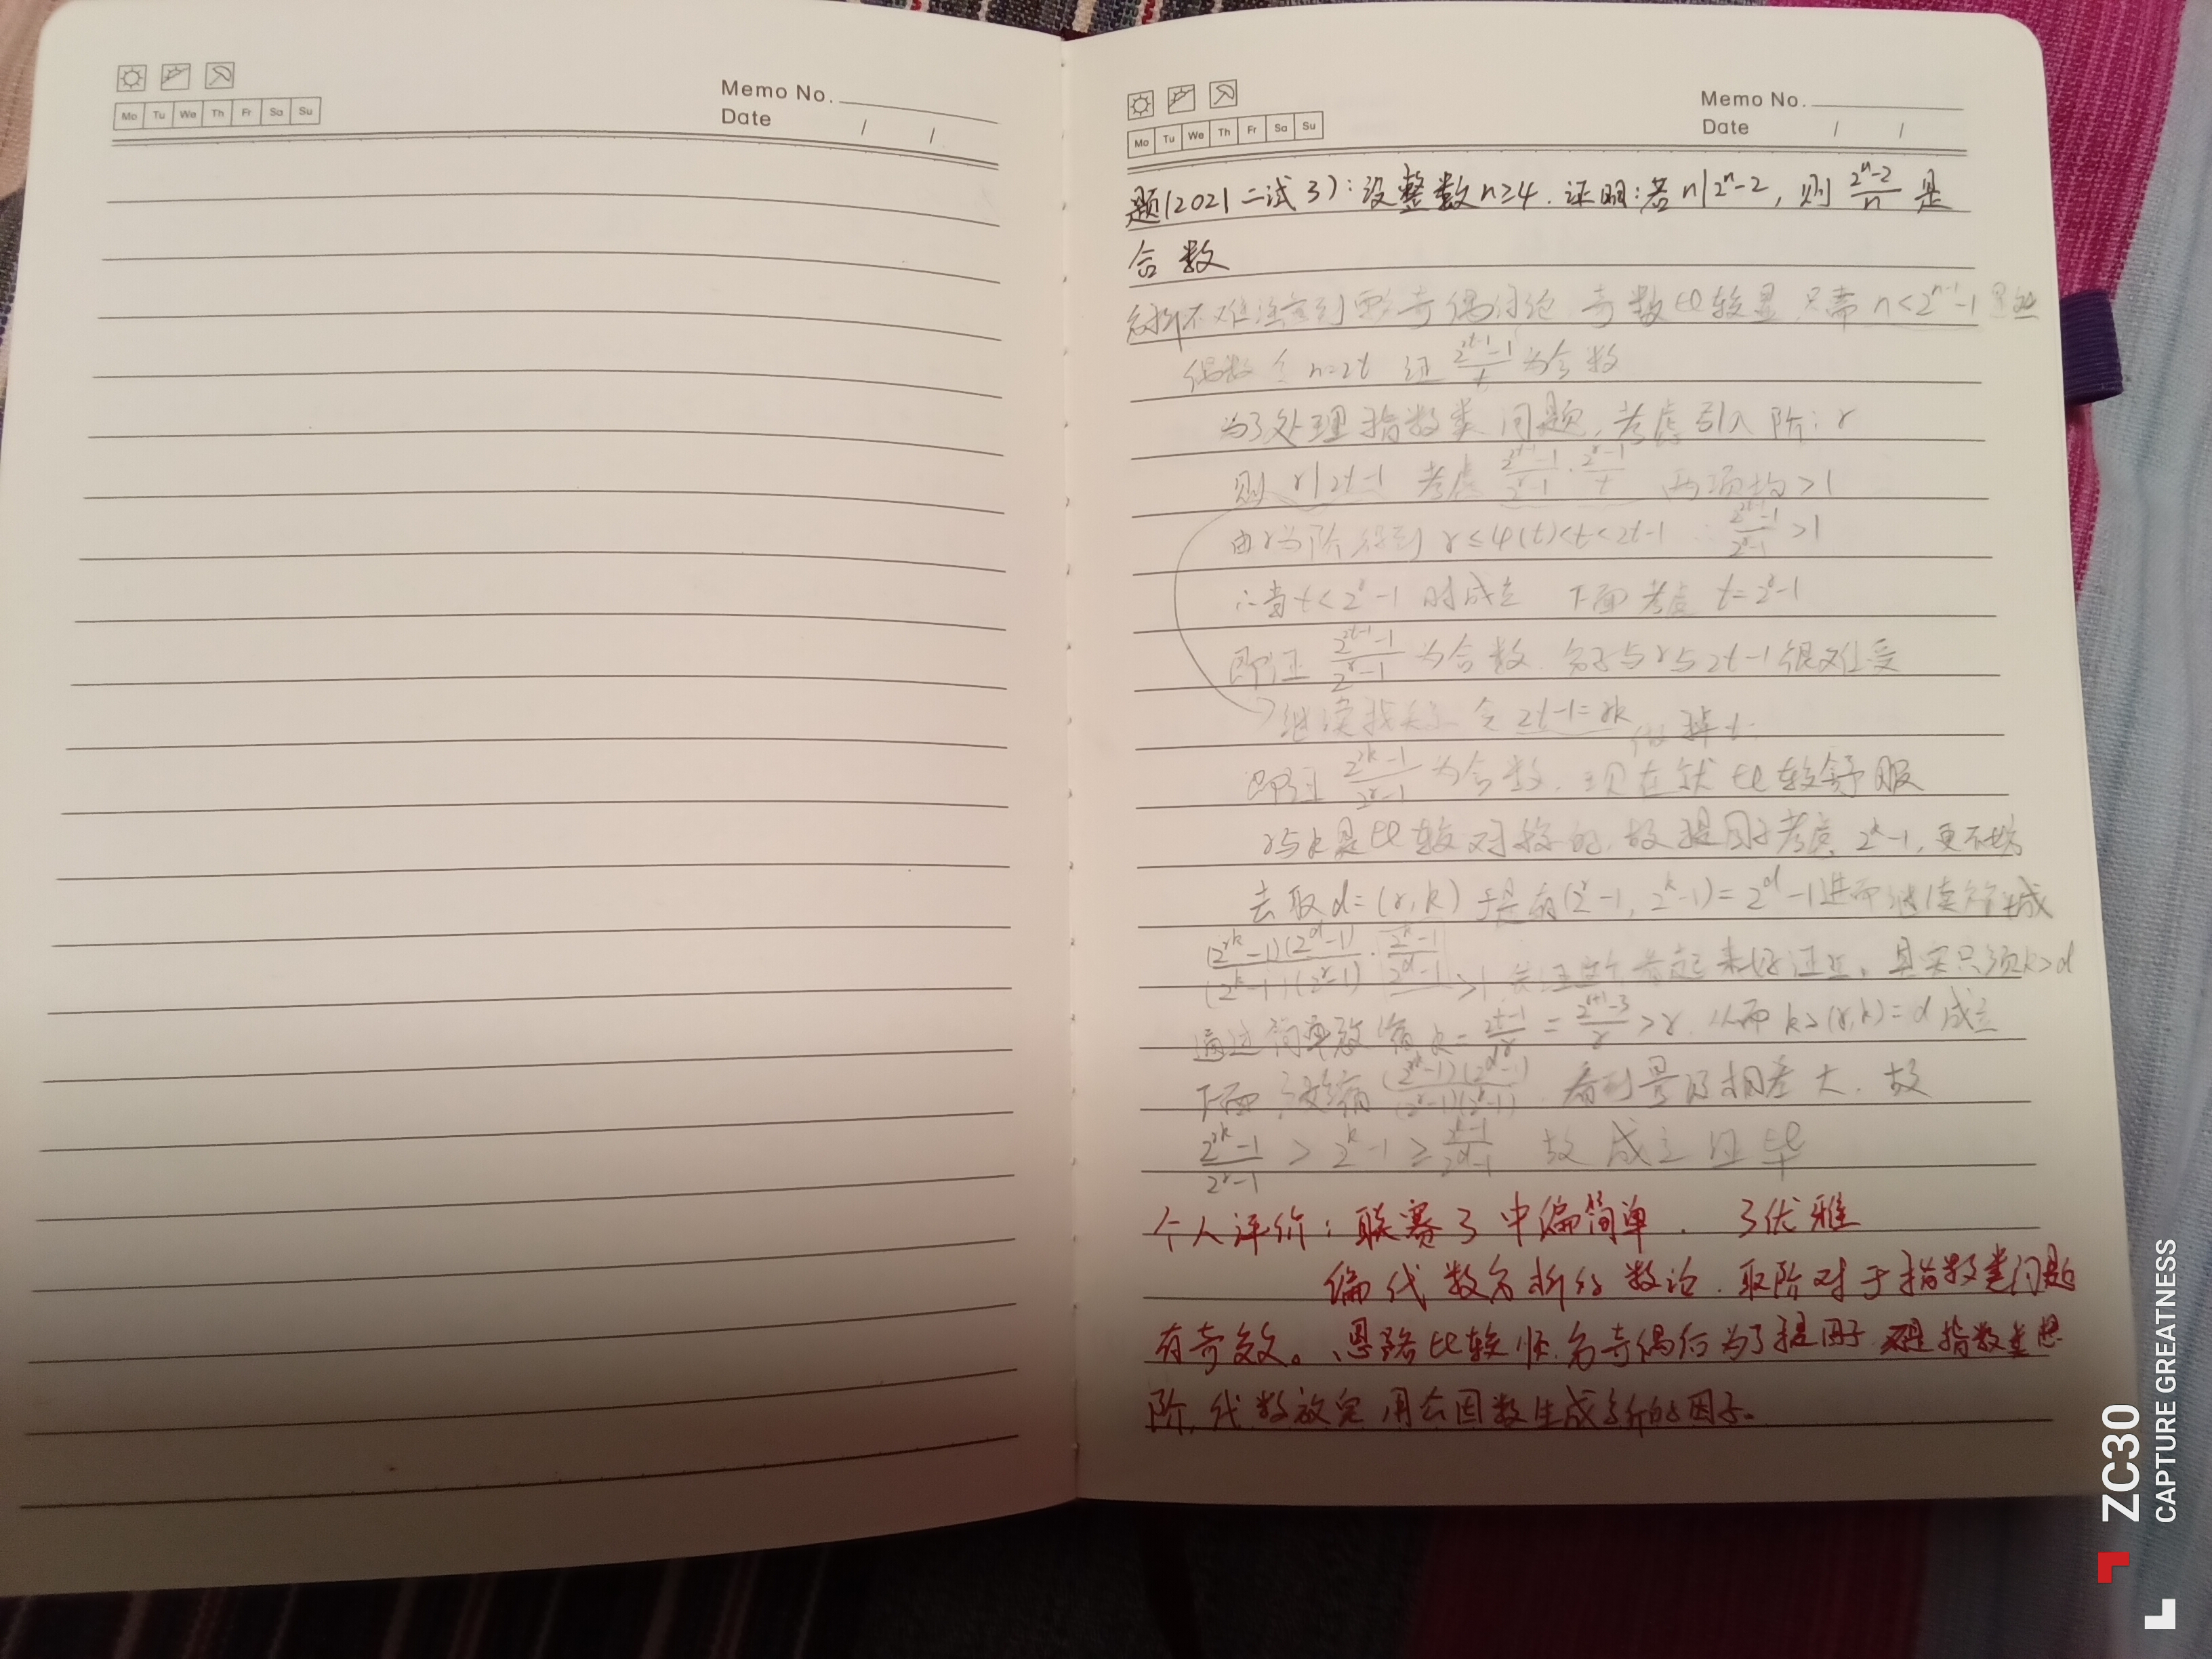 Memo No.
Mo Tu We Th Fr Sa Su
Date / /
Memo No.
Mo Tu We Th Fr Sa Su
Date / /
题(2021二试3):设整数n≥4.证明:若n|2ⁿ-2,则(2ⁿ-2)/n是
合数
分析不难注意到要奇偶讨论 奇数比较显 只需n<2ⁿ⁻¹-1
偶数令n=2t 证(2²ᵗ⁻¹-1)/t为合数
为了处理指数类问题,考虑引入阶:r
则r|2t-1 考虑(2²ᵗ⁻¹-1)/(2ʳ-1)·(2ʳ-1)/t 两项均>1
由r为阶得到r≤φ(t)<t<2t-1 ∴(2²ᵗ⁻¹-1)/(2ʳ-1)>1
∴当t<2ʳ-1时成立 下面考虑t=2ʳ-1
即证(2²ᵗ⁻¹-1)/(2ʳ-1)为合数.分子与r与2t-1很难受
继续找关系 令2t-1=rk 做掉t.
即证(2ʳᵏ-1)/(2ʳ-1)为合数.现在就比较舒服
r与k是比较对称的,故提因子考虑2ᵏ-1,更不妨
去取d=(r,k) 于是有(2ʳ-1,2ᵏ-1)=2ᵈ-1进而继续分成
(2ʳᵏ-1)(2ᵈ-1)/(2ᵏ-1)(2ʳ-1)·(2ᵏ-1)/(2ᵈ-1) >1 看起来好证些,其实只须k>d
通过简单放缩k=(2t-1)/r=(2ʳ⁺¹-3)/r>r.从而k>(r,k)=d成立
下面放缩(2ʳᵏ-1)(2ᵈ-1)/(2ʳ-1)(2ᵏ-1).看到量级相差大.故
(2ʳᵏ-1)/(2ʳ-1)>2ᵏ-1≥(2ᵏ-1)/(2ᵈ-1) 故成立证毕
个人评价:联赛3中偏简单.
偏代数分析的数论.取阶对于指数类问题
有奇效。思路比较顺.分奇偶后为了提因子 指数类想
阶,代数放完用公因数生成新的因子。
ZC30
CAPTURE GREATNESS